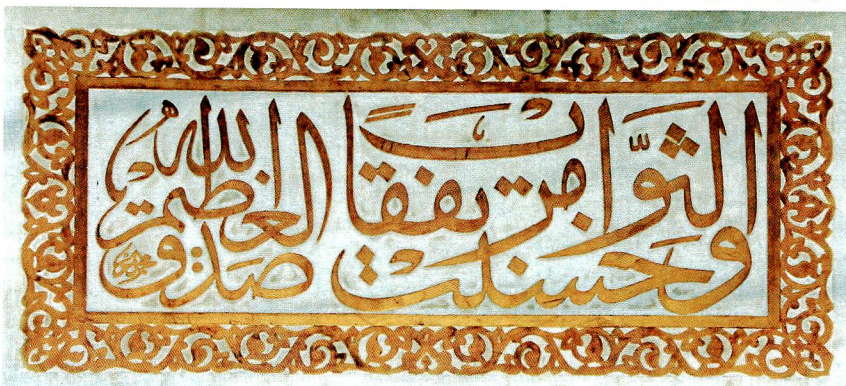 الثوَّاب وحسنت مرتفقاً صدق الله العظيم